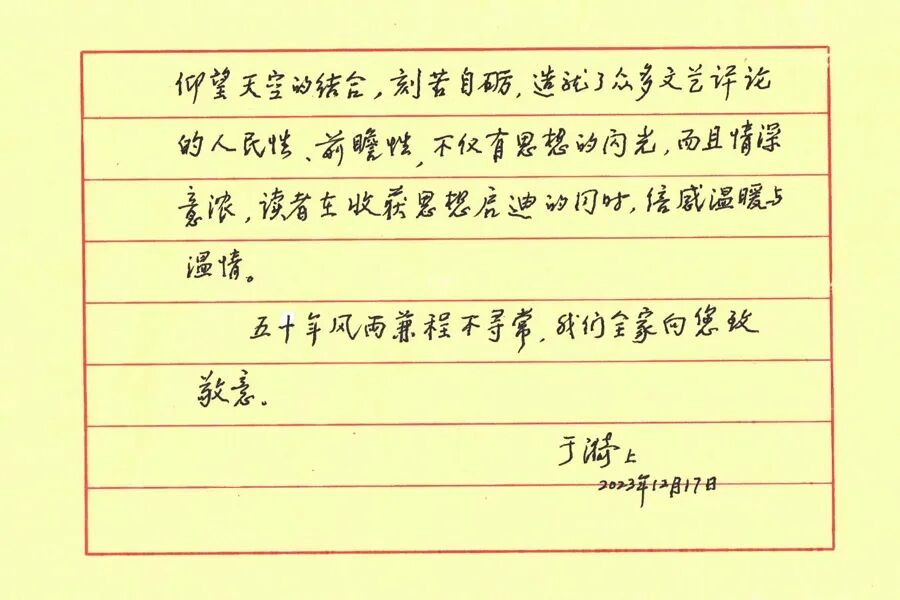 仰望天空的结合，刻苦自砺，造就了众多文艺评论
的人民性、前瞻性，不仅有思想的闪光，而且情深
意浓，读者在收获思想启迪的同时，倍感温暖与
温情。
五十年风雨兼程不寻常，我们全家向您致
敬意。
于漪上
2023年12月17日